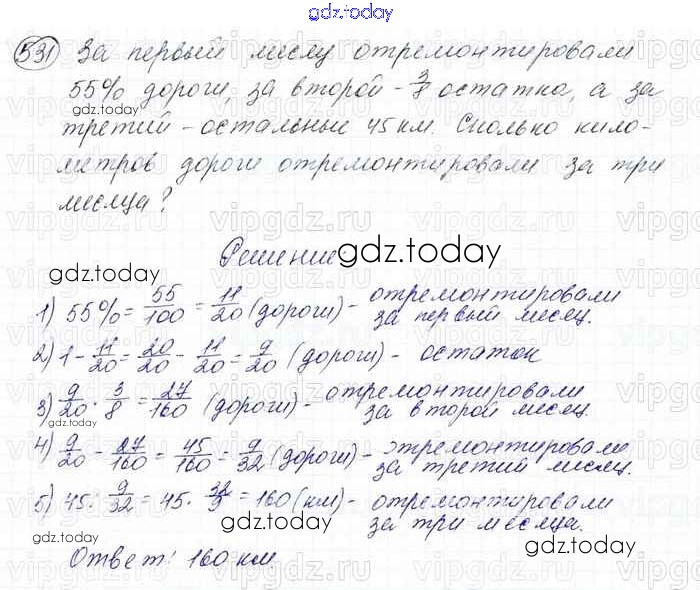 gdz.today
531 За первый месяц отремонтировали
55% дороги, за второй - 3/8 остатка, а за
gdz.today
третий - остальные 45 км. Сколько кило-
метров дороги отремонтировали за три
месяца?
Решение
gdz.today
gdz.today
1) 55% = 55/100 = 11/20 (дороги) - отремонтировали за первый месяц.
2) 1 - 11/20 = 20/20 - 11/20 = 9/20 (дороги) - остаток
3) 9/20 · 3/8 = 27/160 (дороги) - отремонтировали за второй месяц.
gdz.today
4) 9/20 - 27/160 = 45/160 = 9/32 (дороги) - отремонтировали за третий месяц.
5) 45 · 9/32 = 45 · 32/9 = 160 (км) - отремонтировали за три месяца.
gdz.today
gdz.today
Ответ: 160 км
vipgdz.ru